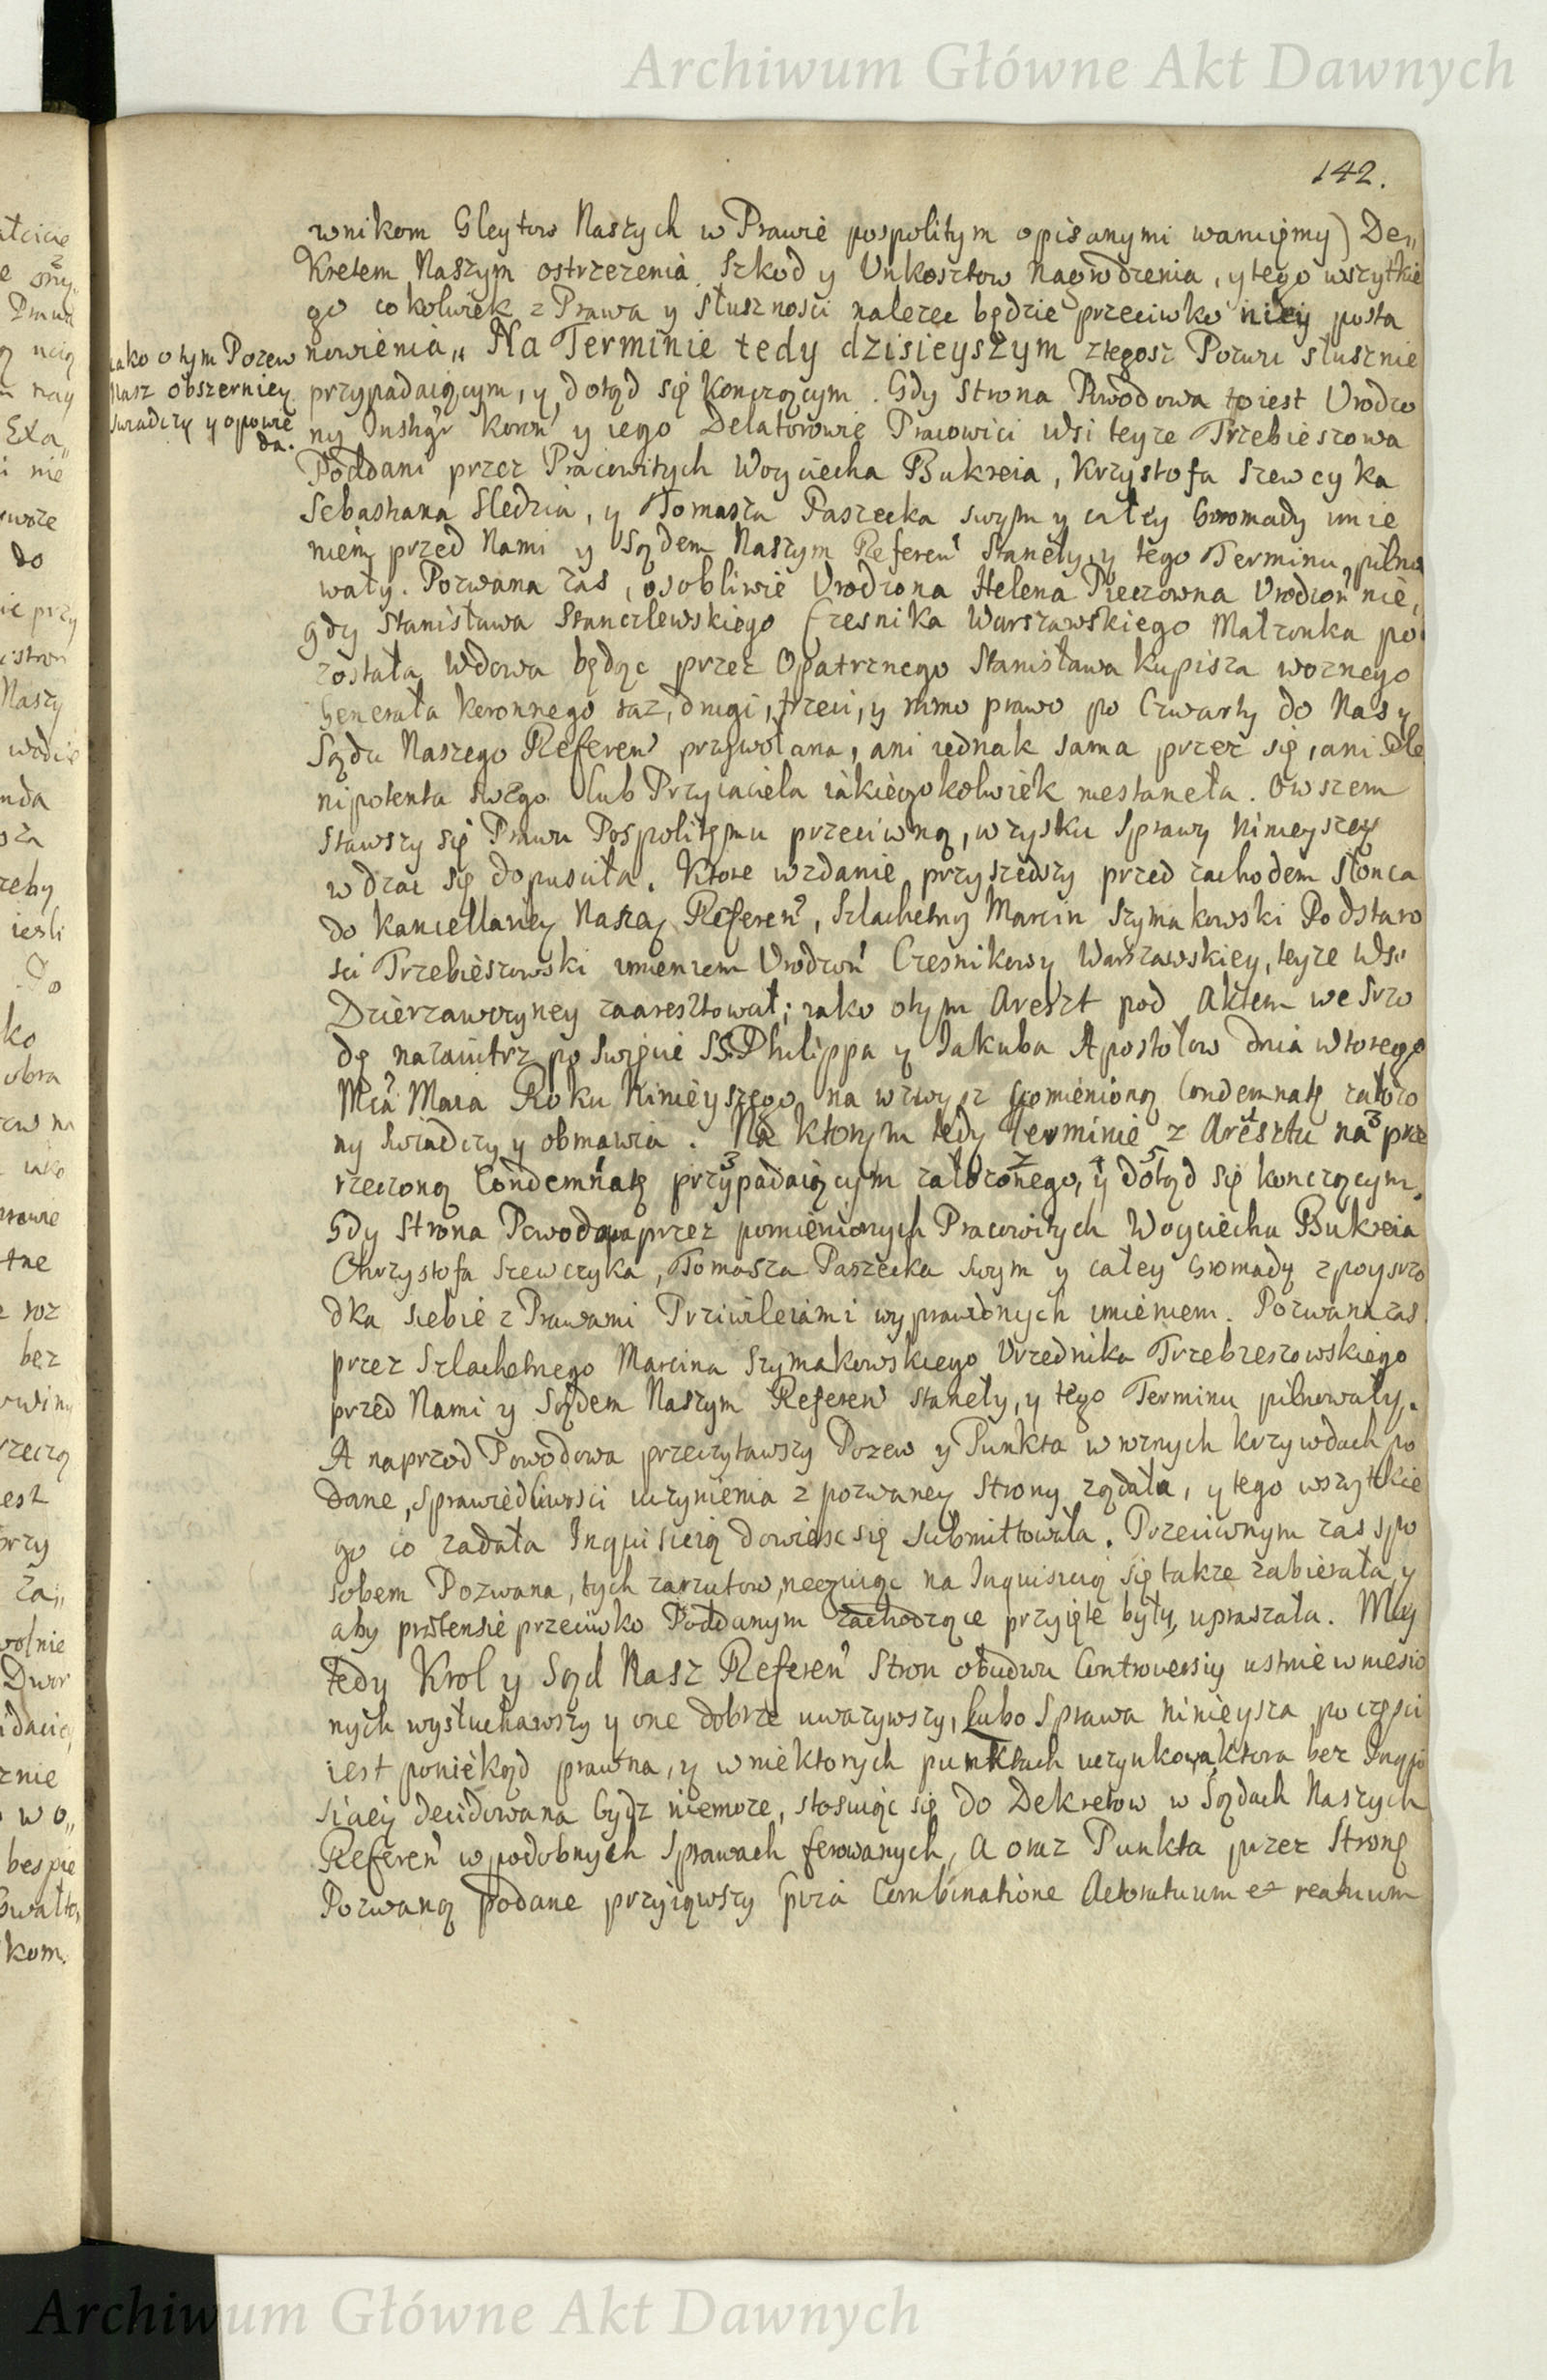 Archiwum Główne Akt Dawnych
142.
wnikom Gleytow Naszych w Prawie pospolitym opisanymi waruięmy) De„
kretem Naszym ostrzezenia, Szkod y Unkosztow nagrodzenia, y tego wszytkie
go cokolwiek z Prawa y słusznosci nalezec będzie przeciwko niey posta
nowienia„ Na Terminie tedy dzisieyszym ztegosz Pozwu słusznie
iako o tym Pozew
Nasz obszerniey
swiadczy y opowie
da.
przypadaiącym, y dotąd się konczącym. Gdy Strona Powodowa to iest Urodzo
ny Instigr koron y iego Delatorowie Pracowici wsi teyze Trzebieszowa
Poddani przez Pracowitych Woyciecha Bukreia, Krzysztofa Szewcyka
Sebastyana Sledzia, y Tomasza Paszecka swym y całey Gromady imie
niem przed Nami y Sądem Naszym Referen stanęły y tego Terminu pilno
wały. Pozwana zas, osobliwie Urodzona Helena Pieczowna Urodzon nie
gdy Stanisława Stanczlewskiego Czesnika Warszawskiego Małzonka po
została wdowa będąc przez Opatrznego Stanisława Kupisza woznego
Generała koronnego raz, drugi, trzeci, y mimo prawo po Czwarty do Nas y
Sądu Naszego Referen przywołana, ani iednak sama przez się, ani Ple
nipotenta swego lub Przyiaciela iakiegokolwiek niestaneła. Owszem
stawszy się Prawu Pospolitemu przeciwną, w zysku Sprawy ninieyszey
wdzac się dopusciła. Ktore wzdanie przyszedszy przed zachodem słonca
do kancellaryey Naszey Referen, Szlachetny Marcin Szymakowski Podstaro
sci Trzebieszowski imieniem Urodzon Czesnikowy Warszawskiey, teyze wsi
Dzierzawczyney zaaresztował; iako otym Areszt pod Aktem we Srzo
dę nazaiutrz po Swięcie SS. Philippa y Jakuba Apostołow dnia wtorego
Mca Maia Roku Ninieyszego na wzwysz pomienioną Condemnatę załozo
ny swiadczy y obmawia. Na ktorym tedy Terminie z Aresztu na prze
rzeczoną Condemnatę przypadaiącym załozonego, y dotąd się konczącym.
Gdy Strona Powodowa przez pomienionych Pracowitych Woyciecha Bukreia
Chrzystofa Szewczyka, Tomasza Paszecka swym y całey Gromady zposrzo
dka siebie z Prawami Przivileiami wyprawionych imieniem. Pozwana zas
przez Szlachetnego Marcina Szymakowskiego Urzednika Trzebieszowskiego
przed Nami y Sądem Naszym Referen stanęły, y tego Terminu pilnowały.
A naprzod Powodowa przeczytawszy Pozew y Punkta w roznych krzywdach po
dane, sprawiedliwosci uczynienia z pozwaney Strony ządała, y tego wszytkie
go co zadała Inquisicią dowiesc się submittowała. Przeciwnym zas spo
sobem Pozwana, tych zarzutow, neguiąc na Inquisicią się takze zabierała y
aby prætensie przeciwko Poddanym zachodzące przyięte były, upraszała. My
tedy Krol y Sąd Nasz Referen Stron obudwu Controversiy ustnie wniesio
nych wysłuchawszy y one dobrze uwazywszy, lubo Sprawa ninieysza po częsci
iest poniekąd prawna, y w niektorych punktach uczynkowa, ktora bez Inqui
siciey decidowana bydz niemoze, stosuiąc się do Dekretow w Sądach Naszych
Referen w podobnych Sprawach ferowanych, a oraz Punkta przez Stronę
Pozwaną podane przyiąwszy præ Combinatione Actoratuum et reatuum
Archiwum Główne Akt Dawnych